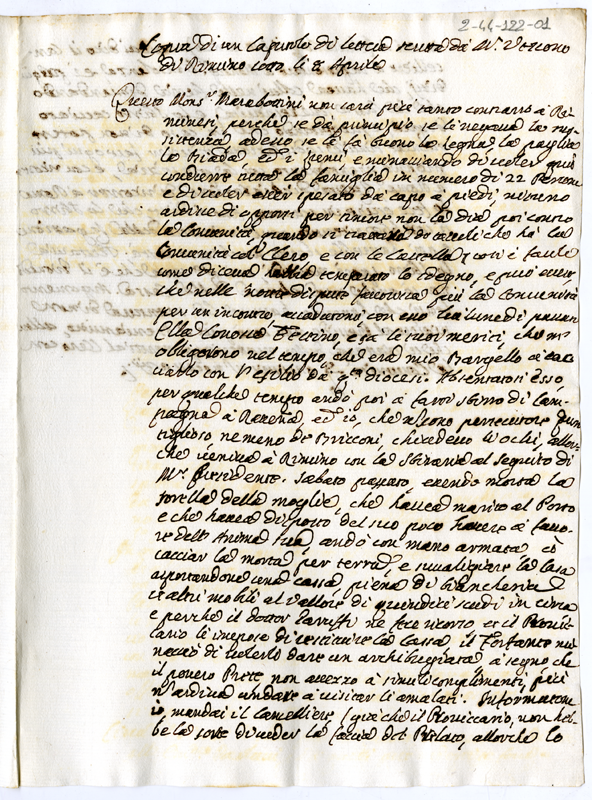 2-44-122-01
Copia di un Capitolo di lettera scritta da M.r Vescovo
di Rimino sotto li 8 Aprile
Questo Mons.r Marabottini non sarà più tanto contrario a Ri-
minesi, perche se da principio se li negava la sus-
sistenza adesso se le fà buono la legna la paglia
la Biada, Et i fieni, e minacciando di voler quì
condurre tutta la famiglia in numero di 22 Persone
e di voler esser spesato da capo a piedi, niuno
ardisce di opporsi per timore non la dia poi contro
la Comunità, quando si tratterà do che ha la
Comunità col Clero, e con le Castella, così i
come diceva temperato lo sdegno, e può esser
che nelle può favorirà più la Comunità
per un incontro accaduto con esso lui lunedì
Ella Conosce Fettino, e sà le suoi meriti, che m'
obligorono nel tempo, che era mio Bargello a cac-
ciarlo con l'esilio da q.ta diocesi. Absentatosi esso,
per qualche tempo andò poi a farsi sbirro di Cam-
pagna a Ravena, ed io, che non sono persecutore pun-
tiglioso, nemeno de Bricconi, chiudevo l'ochi, allor-
che veniva à Rimino con la sbiraria al seguito di
M.r Presidente. Sabato passato, essendo morta la
sorella della moglie, che haveva marito al Porto
e che haveva disposto del suo poco havere a favo-
re dell'Anima sua andò con mano armata à
cacciar la morta per terra, e svaligiare la Casa
asportandone una cassa piena di biancheria
et altri mobili al valore di quindici scudi in circa
e perche il dottor ne fece ricorso et il Provic-
cario li impose di restituire la Cassa, il Forfante mi-
nacciò di volerlo dare un archibugiata a segno che
il povero Prete non avezzo a simili complimenti, più
n'ardiva andare a visitar li amalati. Informatone
io mandai il Cancelliere (già che il Proviccario, non heb-
be la sorte di veder la faccia del Prelato, allorche lo